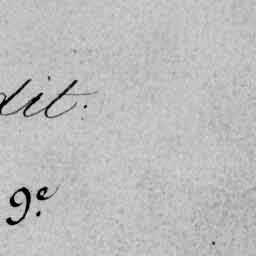 dit.
9e.